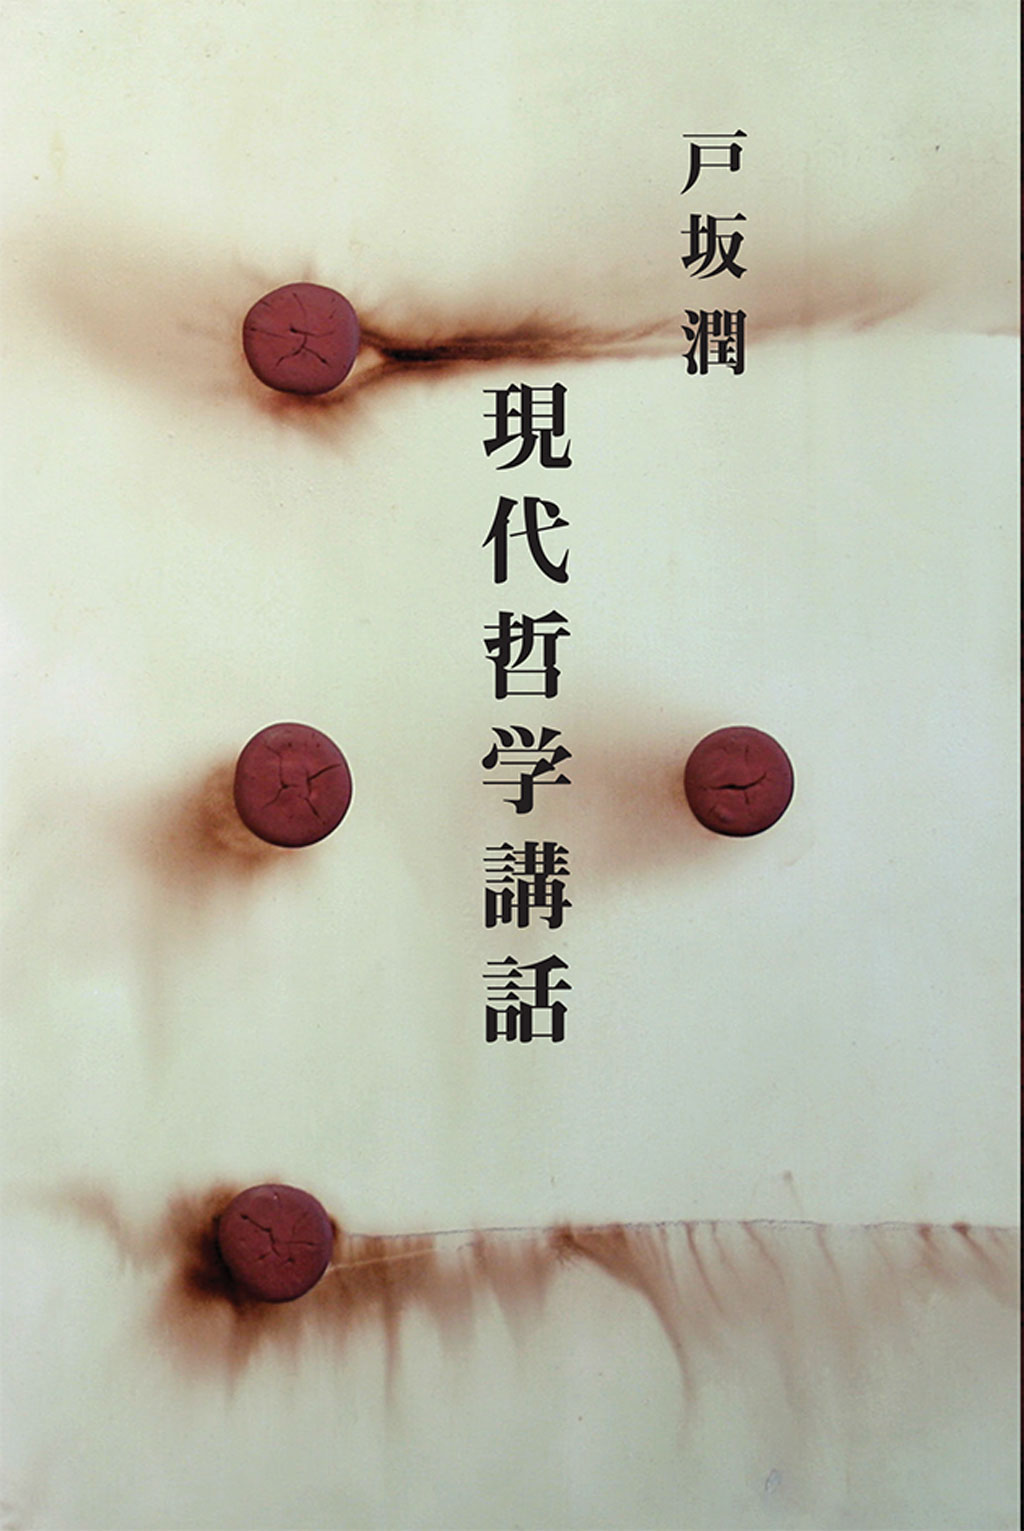 戸坂潤
現代哲学講話